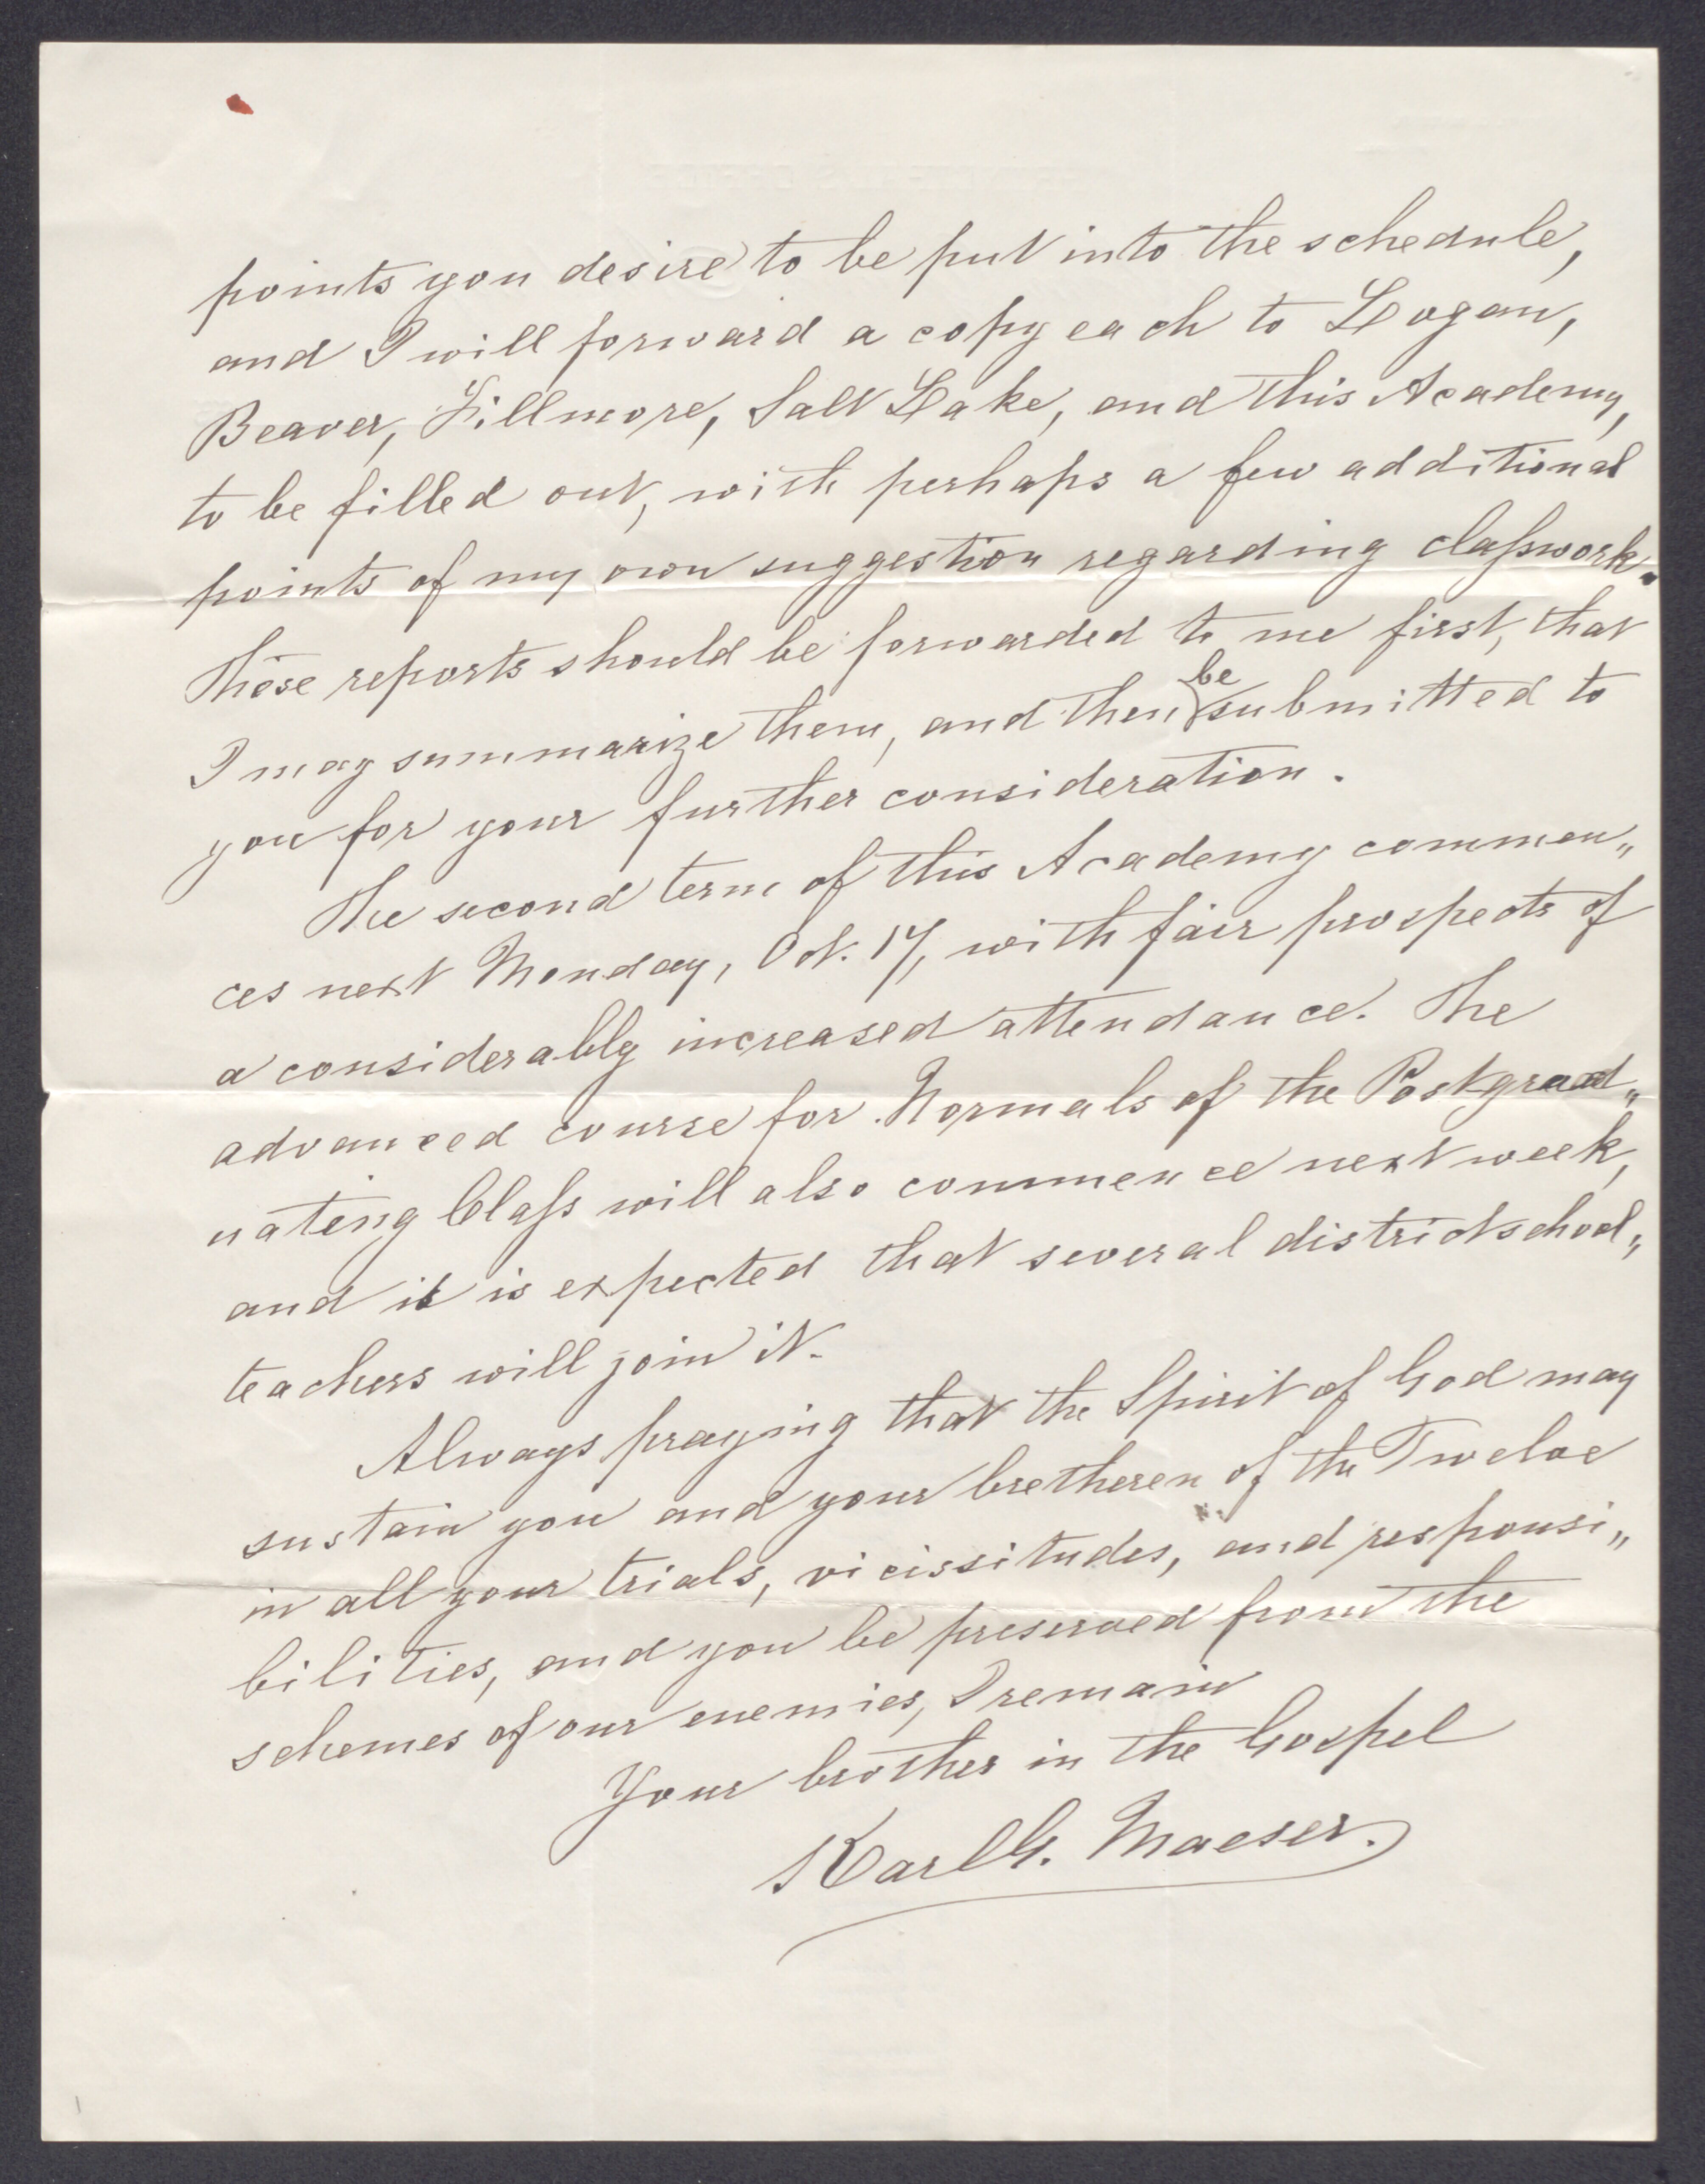 points you desire to be put into the schedule,
and I will forward a copy each to Logan,
Beaver, Fillmore, Salt Lake, and this Academy,
to be filled out, with perhaps a few additional
points of my own suggestion regarding claſswork.
These reports should be forwarded to me first, that
be
I may summarize them, and then submitted to
you for your further consideration.
The second term of this Academy commen„
ces next Monday, Oct. 17, with fair prospects of
a considerably increased attendance. The
advanced course for Normals of the Postgrad„
uating Claſs will also commence next week,
and it is expected that several districtschool„
teachers will join it.
Always praying that the Spirit of God may
sustain you and your bretheren of the Twelve
in all your trials, vicissitudes, and responsi„
bilities, and you be preserved from the
schemes of our enemies, I remain
Your brother in the Gospel
Karl G. Maeser.